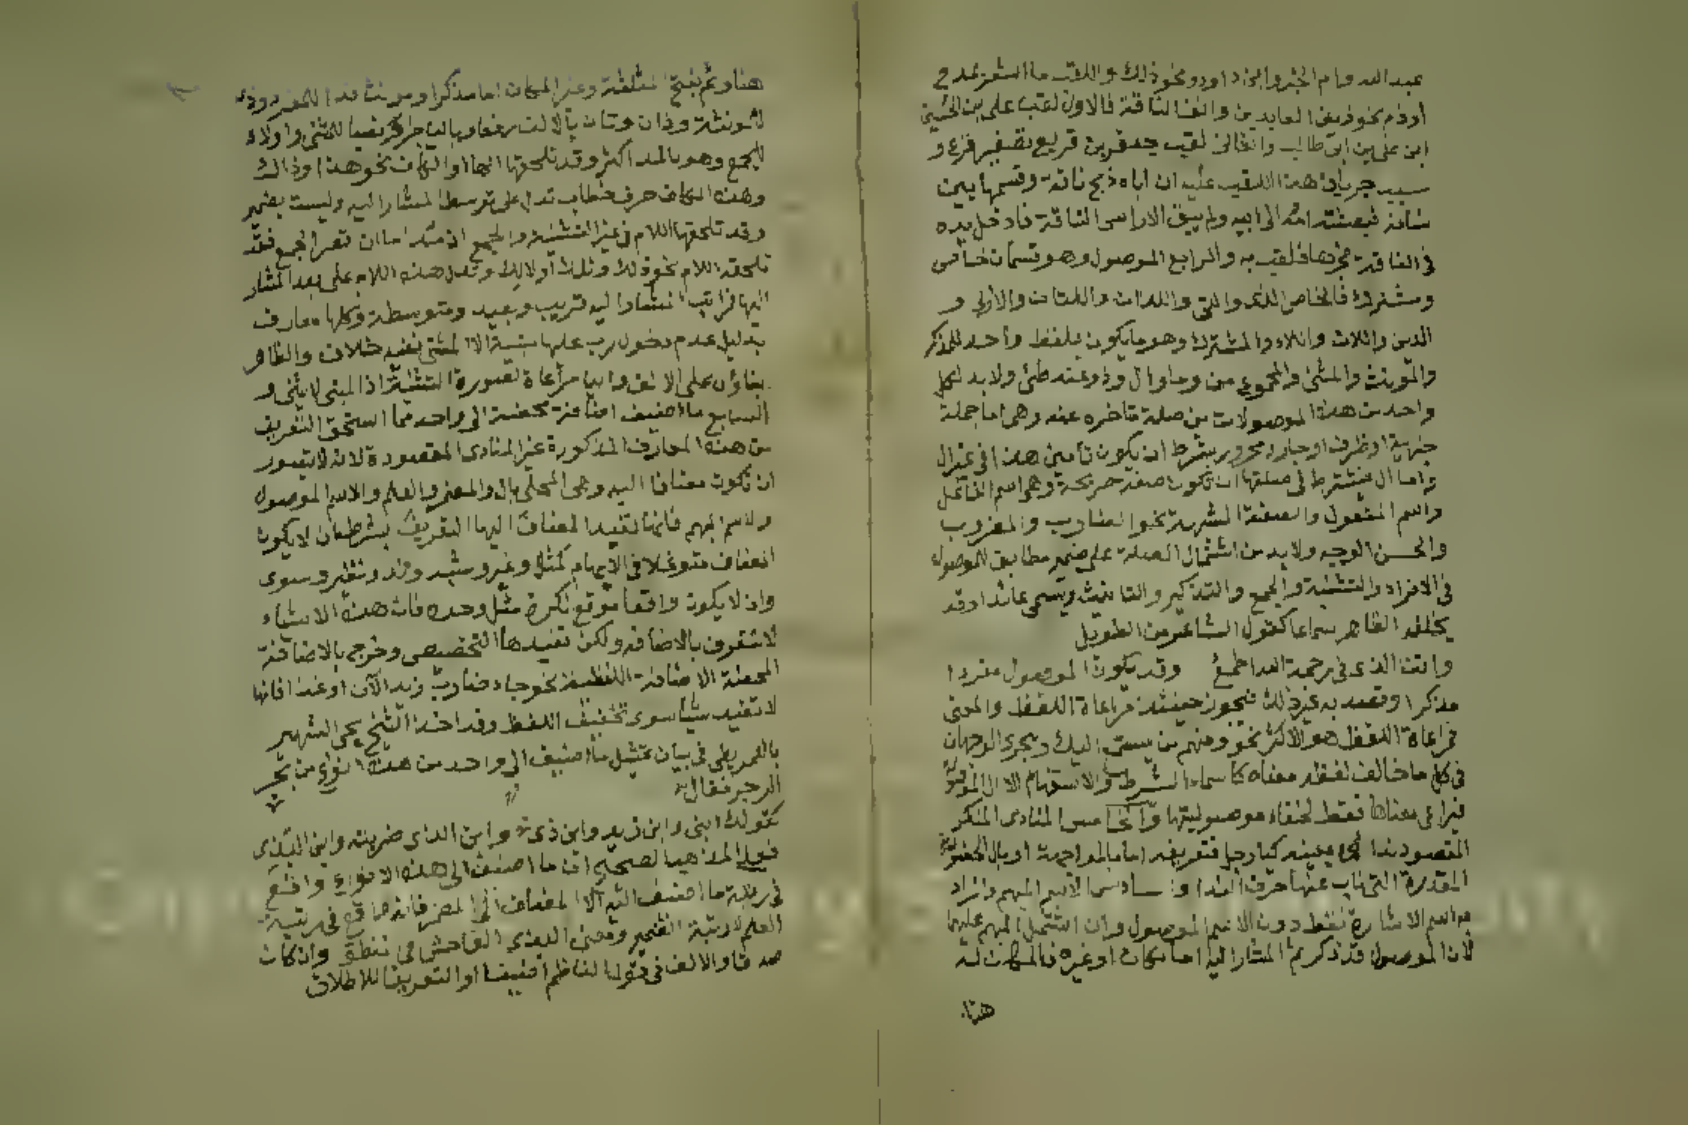 عبد الله وام الخير وابو داود ونحو ذلك واللقب ما اشعر بمدح
أو ذم نحو زين العابدين وانف الناقة فالاول لقب علي بن الحسين
ابن علي بن ابي طالب والثاني لقب جعفر بن قريع تصغير قرع و
سبب جريان هذا اللقب عليه ان اباه ذبح ناقة وقسمها بين
نسائه فبعثته امه الى ابيه ولم يبق الا راس الناقة فادخل يده
في انف الناقة فجرها فلقب به والرابع الموصول وهو قسمان خاص
ومشترك فالخاص الذي والتي واللذان واللتان والأولى و
الذين واللات واللاء والمشترك وهو ما يكون بلفظ واحد للمذكر
والمؤنث والمثنى والمجموع من وما وال وذو عند طي ولا بد لكل
واحد من هذه الموصولات من صلة متأخرة عنه وهي اما جملة
خبرية او ظرف او جار ومجرور بشرط ان يكون تامين هذا في غير ال
واما ال فيشترط في صلتها ان تكون صفة صريحة وهي اسم الفاعل
واسم المفعول والصفة المشبهة نحو الضارب والمضروب
والحسن الوجه ولا بد من اشتمال الصلة على ضمير مطابق للموصول
في الافراد والتثنية والجمع والتذكير والتانيث ويسمى عائدا وقد
يخلفه الظاهر سماعا كقول الشاعر من الطويل
وانت الذي في رحمة الله اطمع وقد يكون الموصول مفردا
مذكرا وقصد به غير ذلك فيجوز حينئذ مراعاة اللفظ والمعنى
فمراعاة اللفظ هو الاكثر نحو ومنهم من يستمع اليك ويجري الوجهان
في كل ما خالف لفظه معناه كاسماء الشرط والاستفهام الا ال الموصولة
فيراعى معناها فقط لخفاء موصوليتها والخامس المنادى المنكر
المقصود ندا معينه كيا رجل فتعريفه اما بالمواجهة او بال الحضورية
المقدرة التي ناب عنها حرف الندا والسادس الاسم المبهم واراد
به اسم الاشارة فقط دون الاسم الموصول وان اشتمل المبهم عليها
لان الموصول قد ذكر ثم المشار اليه اما مكان او غيره فالمكان له
هنا
هنا وثم بفتح المثلثة وغير المكان اما مذكر او مونث فذا للمفرد وذي
لمونثه وذان وتان بالالف رفعا وبالياء جرا ونصبا للمثنى واولاء
للجمع وهو بالمد اكثر وقد تلحقها الهاء او الكاف نحو هذا وذاك
وهذه الكاف حرف خطاب تدل على توسط المشار اليه وليست بضمير
وقد تلحقها اللام في غير التثنية والجمع ان مد اما ان قصر الجمع فقد
تلحقه اللام نحو ذلك وتلك أولالك وتدل هذه اللام على بعد المشار
اليها فمراتب المشار اليه قريب وبعيد ومتوسطة وكلها معارف
بدليل عدم دخول رب عليها مبنية الا المثنى ففيه خلاف والظاهر
بناؤه على الالف واليا مراعاة لصورة التثنية اذ المبني لا يثنى و
السابع ما اضيف اضافة محضة الى واحد مما استحق التعريف
من هذه المعارف المذكورة غير المنادى المقصودة لانه لا يتصور
ان تكون مضافا اليه وهي المحلى بال والمضمر والعلم والاسم الموصول
والاسم المبهم فانها تفيد المضاف اليها التعريف بشرط ان لا يكون
المضاف متوغلا في الابهام كمثل وغير وشبه وند ونظير وسوى
وان لا يكون واقعا موقع نكرة مثل وحده فان هذه الاشياء
لا تتعرف بالاضافة ولكن تفيدها التخصيص وخرج بالاضافة
المحضة الاضافة اللفظية نحو جاء ضارب زيد الآن او غدا فانها
لا تفيد شيأ سوى تخفيف اللفظ وقد اخذ الشيخ يحيى الشهير
بالعمريطي في بيان تمثيل ما اضيف الى واحد من هذه الانواع من بحر
الرجز فقال
كقولك ابني وابن زيد وابن ذي وابن الذي ضربته وابن البذي
فعلى المذهب الصحيح ان ما اضيف الى هذه الانواع واقع
في رتبة ما اضيف اليه الا المضاف الى المضمر فانه واقع في رتبة
العلم لا رتبة الضمير ومعنى البذي الفاحش في نطقه وان كان
صدقا والالف في قول الناظم اضيفا او التعريفا للاطلاق